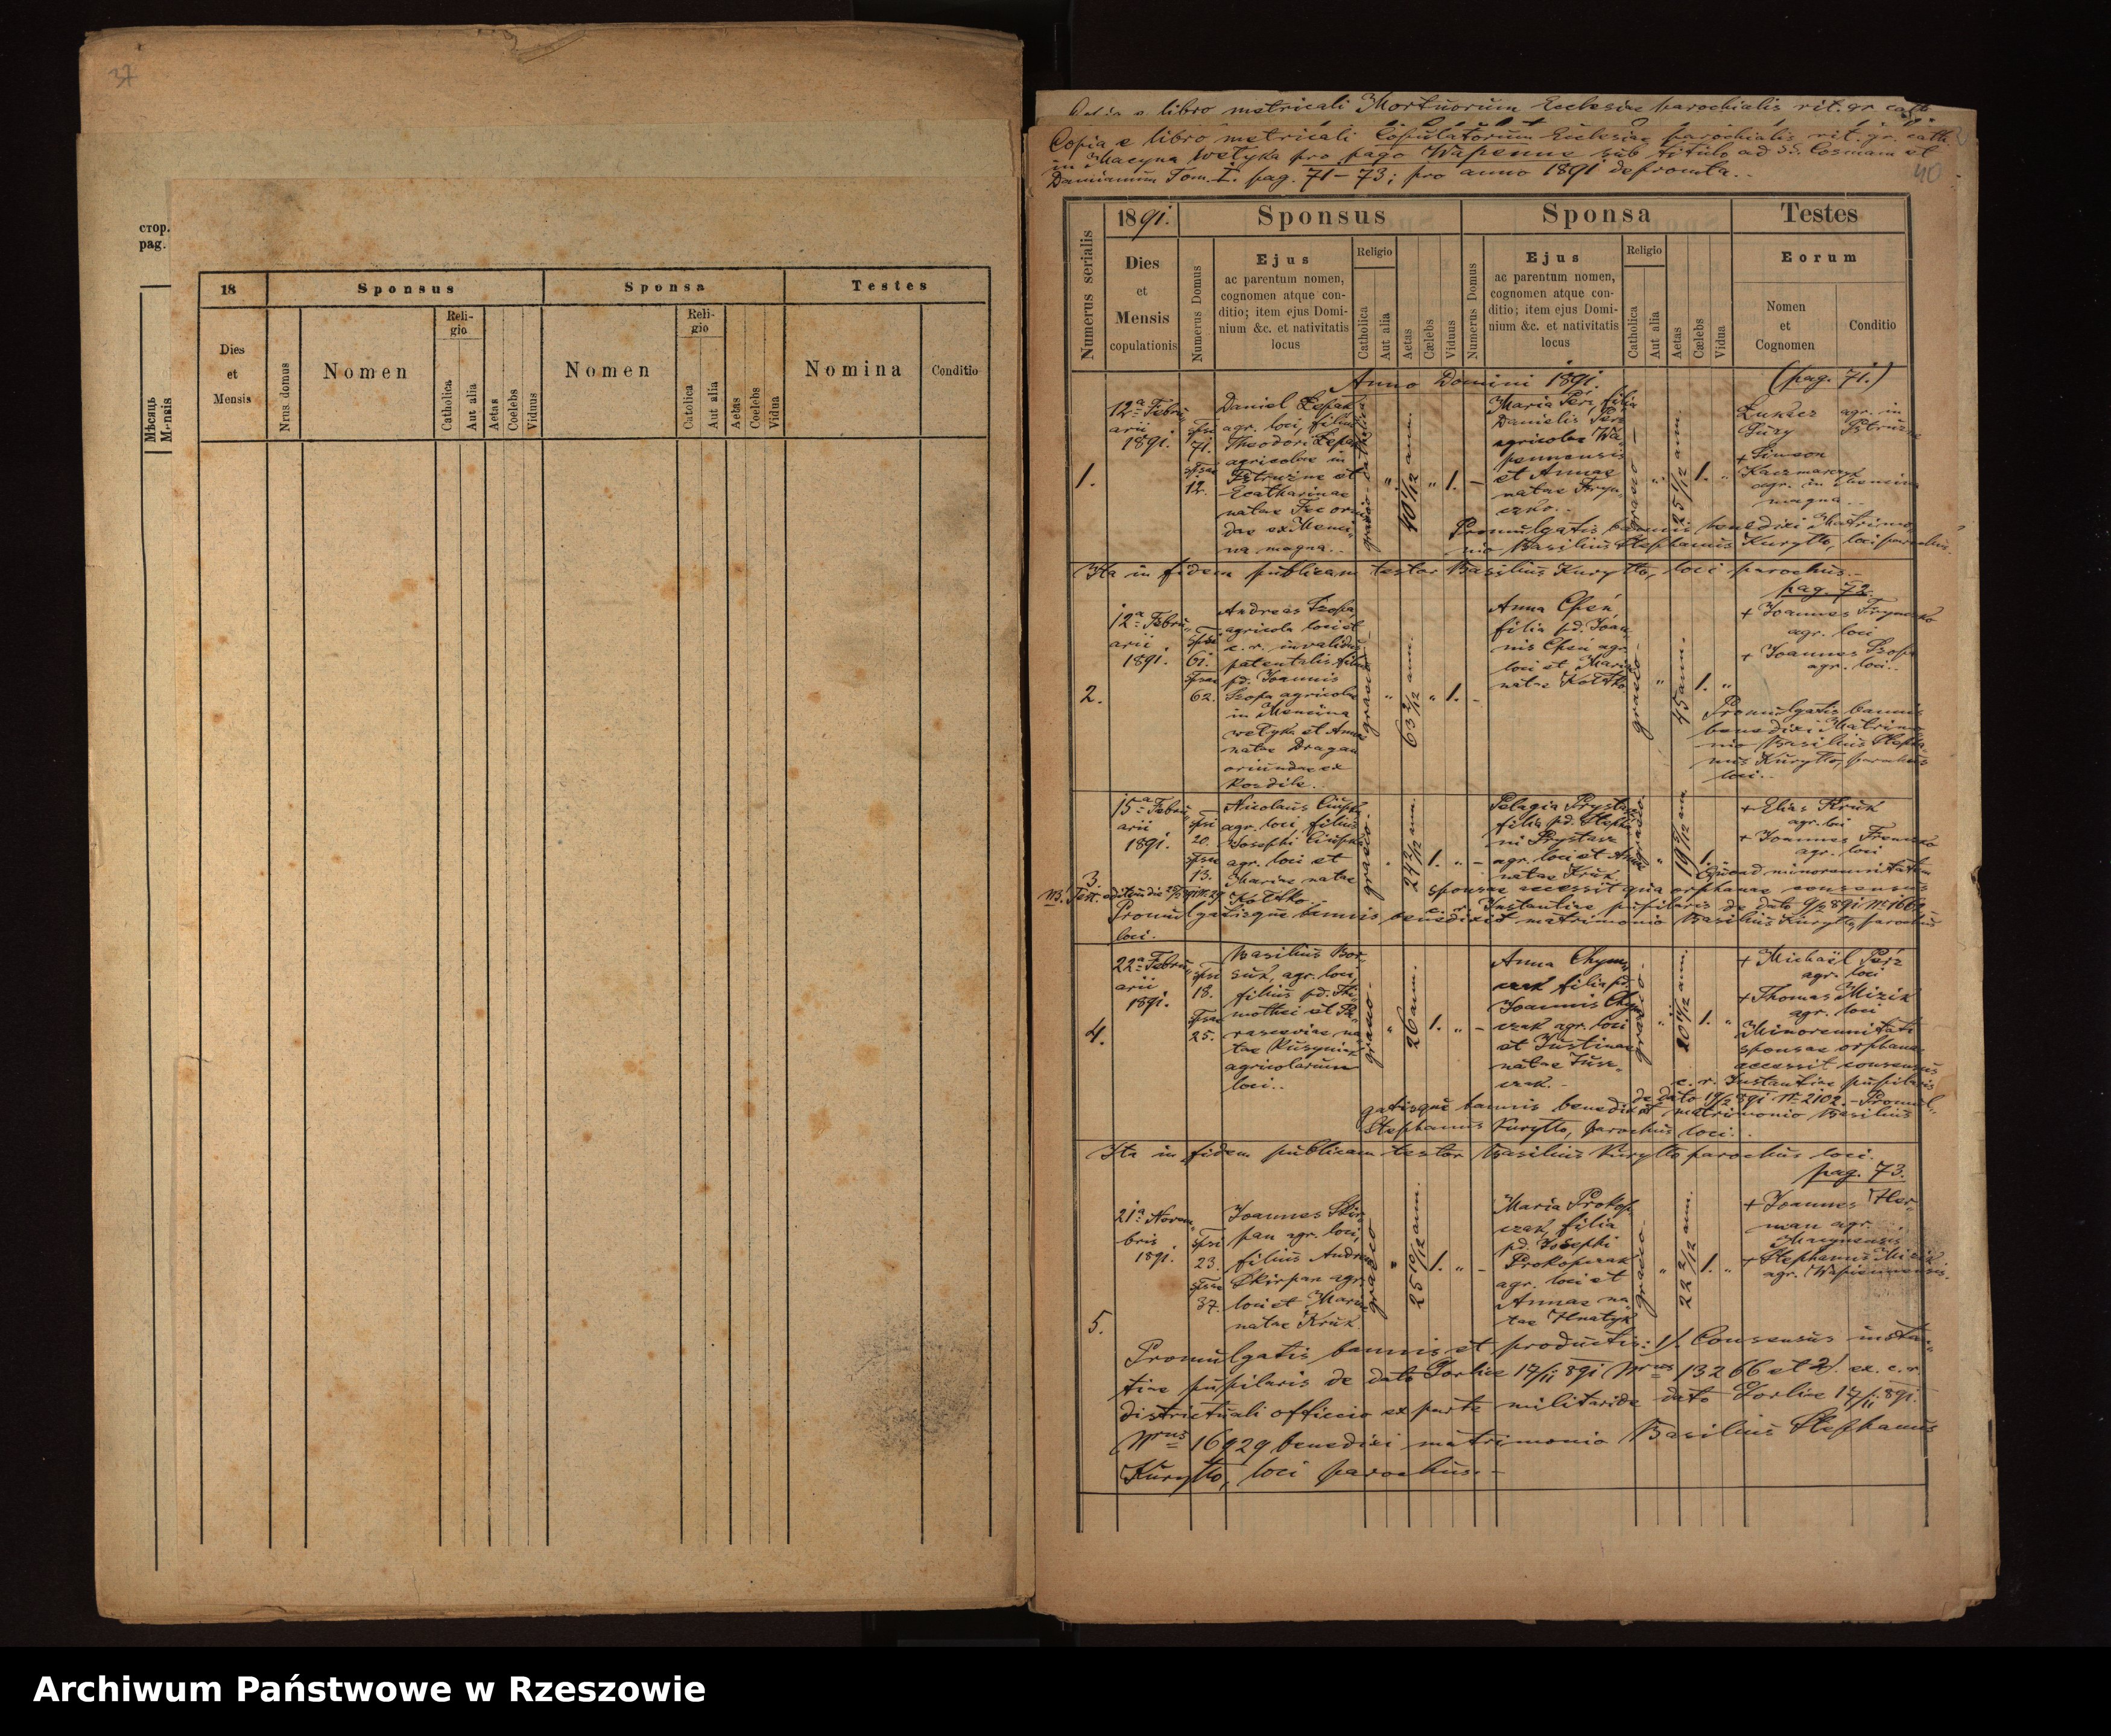 37
стор.
pag.
Мѣсяць
Mensis
18
Sponsus
Sponsa
Testes
Dies
et
Mensis
Nrus domus
Nomen
Reli-
gio
Catholica
Aut alia
Aetas
Coelebs
Viduus
Nomen
Reli-
gio
Catolica
Aut alia
Aetas
Coelebs
Vidua
Nomina
Conditio
libro metricali Mortuorum Ecclesiae parochialis rit. gr. cath.
Copia e libro metricali Copulatorum Ecclesiae parochialis rit. gr. cath.
in Macyna wełyka pro pago Wapenne sub titulo ad SS. Cosmam et
Damianum Tom. I. pag. 71-73; pro anno 1891 depromta.
40
Numerus serialis
1891.
Sponsus
Sponsa
Testes
Dies
et
Mensis
copulationis
Numerus Domus
Ejus
ac parentum nomen,
cognomen atque con-
ditio; item ejus Domi-
nium &c. et nativitatis
locus
Religio
Catholica
Aut alia
Aetas
Cælebs
Viduus
Numerus Domus
Ejus
ac parentum nomen,
cognomen atque con-
ditio; item ejus Domi-
nium &c. et nativitatis
locus
Religio
Catholica
Aut alia
Aetas
Cælebs
Vidua
Eorum
Nomen
et
Cognomen
Conditio
Anno Domini 1891.
(pag. 71.)
1.
12a Febru
arii
1891.
spsi
71.
spsae
12.
Daniel
agr. loci, filius
Theodori
agricolae in
et
Ecatharinae
natae
dae ex Menci
na magna.
graeco catholica
40 1/12 ann.
1.
Maria filia
Danielis
agricolae Wa
pennensis
et Annae
natae Hryn
czko.
graeco
25 1/12 ann.
1.
Lukács agr. in
+ Simeon
Kaczmarczyk
agr. in Mencina
magna.
Promulgatis bannis benedixi Matrimo
nio Basilius Stephanus Kuryłło, loci parochus.
Ita in fidem publicam testor Basilius Kuryłło, loci parochus.
pag. 72.
2.
12a Febru
arii
1891.
spsi
61.
spsae
62.
Andreas Szopa
agricola loci et
c. r. invalidus
patentalis filius
pd. Joannis
Szopa agricolae
in Mencina
wełyka et Anna
natae Dragan
oriundae ex
Rozdile.
graeco
63 2/12 ann.
1.
Anna
filia pd. Joan
nis agr.
loci et Mariae
natae
graeco
45 ann.
1.
+ Joannes
agr. loci
+ Joannes Szopa
agr. loci.
Promulgatis bannis
benedixi Matrimo
nio Basilius Stepha
nus Kuryłło, parochus
loci.
3.
15a Febru
arii
1891.
spsi
20.
spsae
13.
Nicolaus
agr. loci filius
Josephi
agr. loci et
Mariae natae
graeco
24 2/12 ann.
1.
Pelagia Prystasz
filia pd. Stepha
ni Prystasz
agr. loci et Annae
natae Kruk.
graeco
19 ann.
1.
+ Elias Kruk
agr. loci
+ Joannes
agr. loci
Quoad minorennitatem
sponsae accessit qua orphanae consensus
c. r. Instantiae pupilaris de dato
Promulgatisque bannis benedixit matrimonio Basilius Kuryłło, parochus
loci.
4.
22a Febru
arii
1891.
spsi
18.
spsae
25.
Basilius Bor
suk, agr. loci,
filius pd. Thi
mothei et Pa
rasceviae na
tae
agricolarum
loci.
graeco
26 ann.
1.
Anna Chym
czak filia pd.
Joannis Chym
czak agr. loci
et Justinae
natae Jusz
czak.
graeco
1.
+ Michaël
agr. loci
+ Thomas Mizik
agr. loci
Minorennitati
sponsae orphanae
accessit consensus
c. r. Instantiae pupilaris
de dato Nr 2102. - Promul
gatisque bannis benedixit matrimonio Basilius
Stephanus Kuryłło, parochus loci.
Ita in fidem publicam testor Basilius Kuryłło parochus loci.
pag. 73.
5.
21a Novem
bris
1891.
spsi
23.
spsae
37.
Joannes Skir
pan agr. loci,
filius Andreae
Skirpan agr.
loci et Mariae
natae Kruk
graeco
25 10/12 ann.
1.
Maria Prokop
czak, filia
pd. Josephi
Prokopczak
agr. loci et
Annae na
tae Hnatyk
graeco
22 2/12 ann.
1.
+ Joannes Her
man agr.
Macynensis
+ Stephanus Mizik
agr. Wapiennensis.
Promulgatis bannis et productis: 1/. Consensus instan
tiae pupilaris de dato Gorlice 17/11 891 Nrus 13266 et 2/. ex. c. r.
districtuali officio ex parte militari de dato Gorlice 17/11 891.
Nrus 16929 benedixi matrimonio Basilius Stephanus
Kuryłło, loci parochus.
Archiwum Państwowe w Rzeszowie